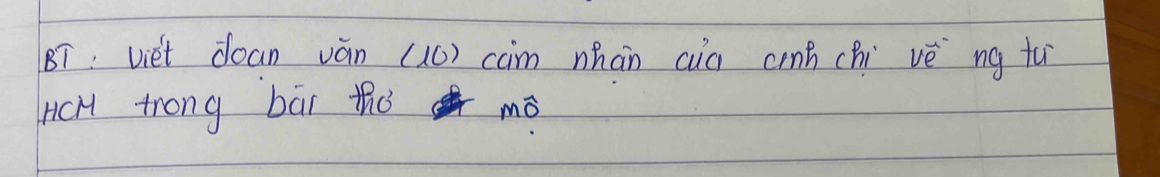 BT: Viết đoạn văn (10) cảm nhận của anh chị về ng tù
HCM trong bài thơ mộ